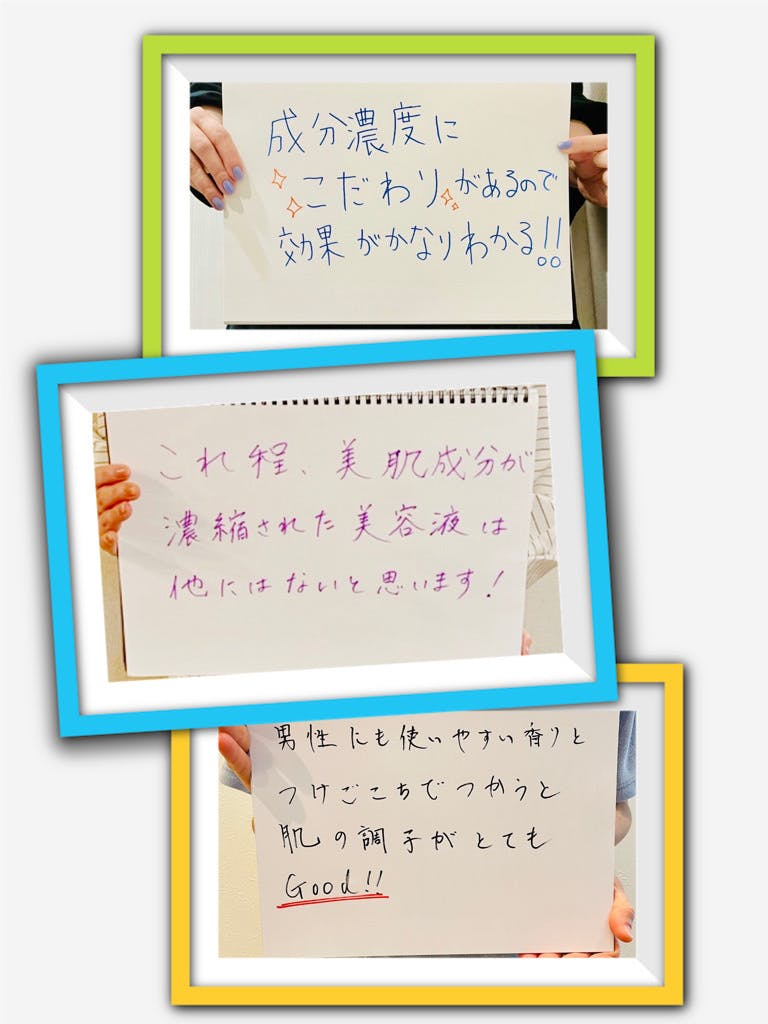 成分濃度に
こだわりがあるので
効果がかなりわかる!!
これ程、美肌成分が
濃縮された美容液は
他にはないと思います!
男性にも使いやすい香りと
つけごこちでつかうと
肌の調子がとても
Good!!